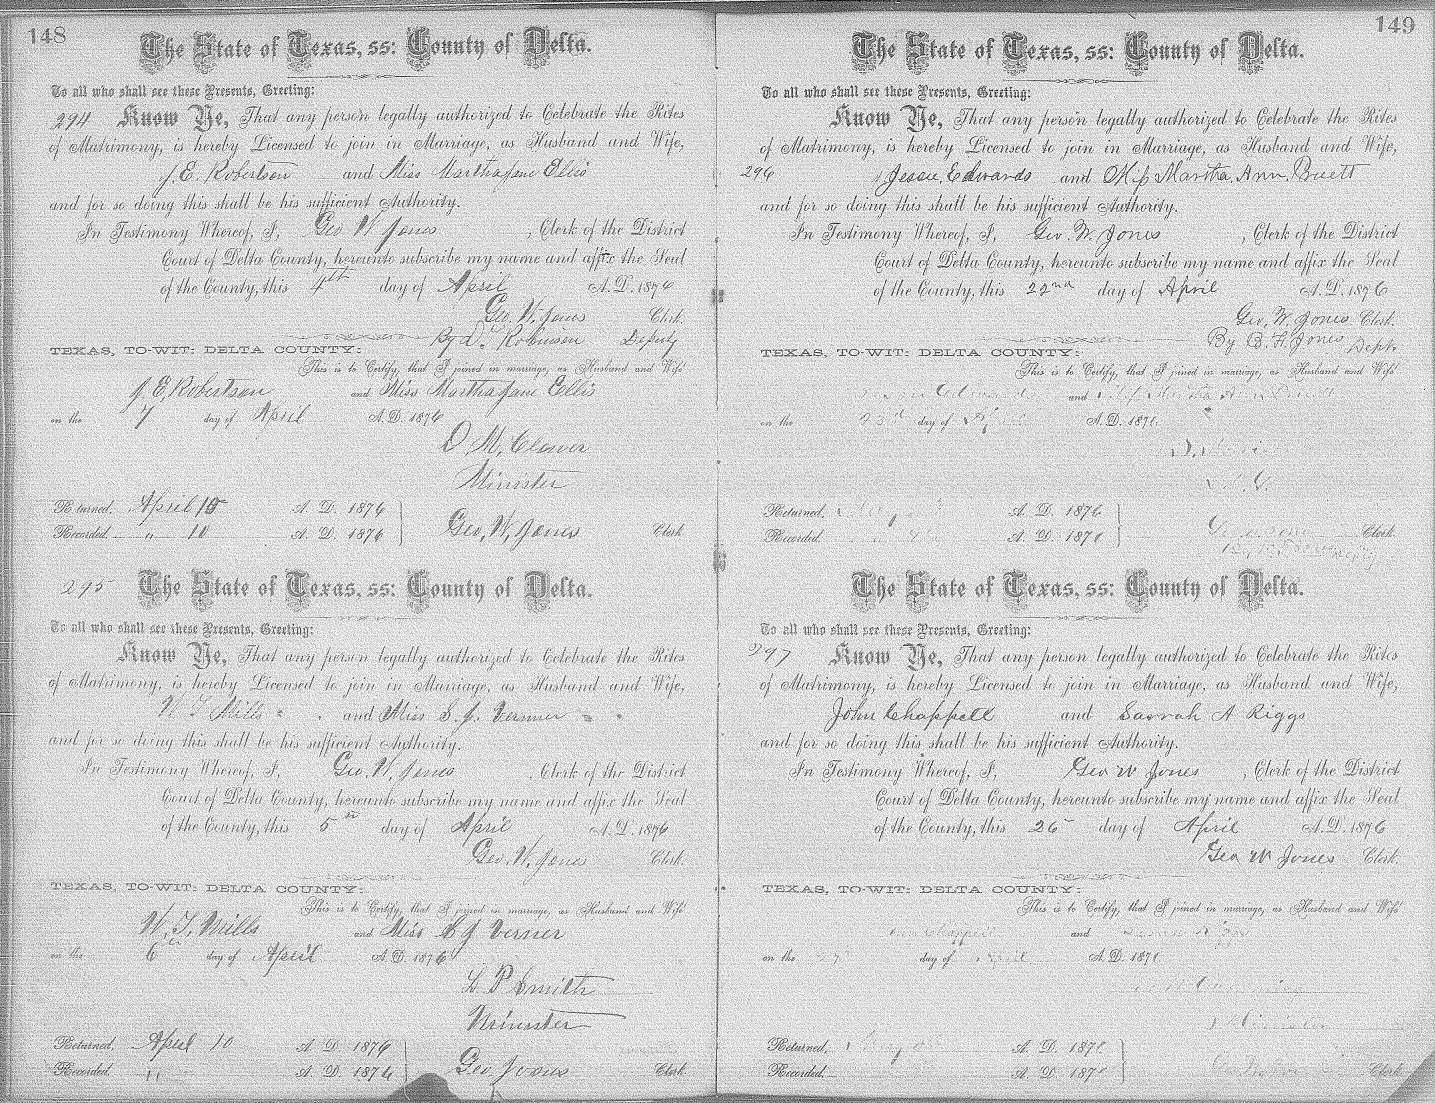 148
The State of Texas, ss: County of Delta.
To all who shall see these Presents, Greeting:
294 Know Ye, That any person legally authorized to Celebrate the Rites
of Matrimony, is hereby Licensed to join in Marriage, as Husband and Wife,
J. E. Robertson and Miss Martha Jane Ellis
and for so doing this shall be his sufficient Authority.
In Testimony Whereof, I, Geo W Jones, Clerk of the District
Court of Delta County, hereunto subscribe my name and affix the Seal
of the County, this 4th day of April A. D. 1876
Geo. W. Jones Clerk.
By D. Robinson Deputy
TEXAS, TO-WIT: DELTA COUNTY:
This is to Certify, that I joined in marriage, as Husband and Wife
J. E. Robertson and Miss Martha Jane Ellis
on the 7 day of April A. D. 1876
D M. Clower
Minister
Returned, April 10 A. D. 1876
Recorded " 10 A. D. 1876 Geo. W. Jones Clerk
295 The State of Texas, ss: County of Delta.
To all who shall see these Presents, Greeting:
Know Ye, That any person legally authorized to Celebrate the Rites
of Matrimony, is hereby Licensed to join in Marriage, as Husband and Wife,
W T Mills and Miss S. J. Verner
and for so doing this shall be his sufficient Authority.
In Testimony Whereof, I, Geo. W. Jones, Clerk of the District
Court of Delta County, hereunto subscribe my name and affix the Seal
of the County, this 5th day of April A. D. 1876
Geo. W. Jones Clerk.
TEXAS, TO-WIT: DELTA COUNTY:
This is to Certify, that I joined in marriage, as Husband and Wife
W. T. Mills and Miss S J Verner
on the 6th day of April A. D. 1876
L P Smith
Minister
Returned, April 10 A. D. 1876
Recorded " A. D. 1876 Geo Jones Clerk
149
The State of Texas, ss: County of Delta.
To all who shall see these Presents, Greeting:
Know Ye, That any person legally authorized to Celebrate the Rites
of Matrimony, is hereby Licensed to join in Marriage, as Husband and Wife,
296 Jessie Edwards and Miss Martha Ann Buett
and for so doing this shall be his sufficient Authority.
In Testimony Whereof, I, Geo. W. Jones, Clerk of the District
Court of Delta County, hereunto subscribe my name and affix the Seal
of the County, this 22nd day of April A. D. 1876
Geo. W. Jones Clerk.
By B. F. Jones Dept.
TEXAS, TO-WIT: DELTA COUNTY:
This is to Certify, that I joined in marriage, as Husband and Wife
Edwards and Martha Ann
on the 23rd day of A. D. 187
Returned, A. D. 1876
Recorded A. D. 187 Clerk
The State of Texas, ss: County of Delta.
To all who shall see these Presents, Greeting:
297 Know Ye, That any person legally authorized to Celebrate the Rites
of Matrimony, is hereby Licensed to join in Marriage, as Husband and Wife,
John Chappell and Sarrah A Riggs
and for so doing this shall be his sufficient Authority.
In Testimony Whereof, I, Geo W Jones, Clerk of the District
Court of Delta County, hereunto subscribe my name and affix the Seal
of the County, this 26 day of April A. D. 1876
Geo W Jones Clerk.
TEXAS, TO-WIT: DELTA COUNTY:
This is to Certify, that I joined in marriage, as Husband and Wife
Chappell and
on the day of April A. D. 187
Minister
Returned, A. D. 187
Recorded A. D. 187 Clerk